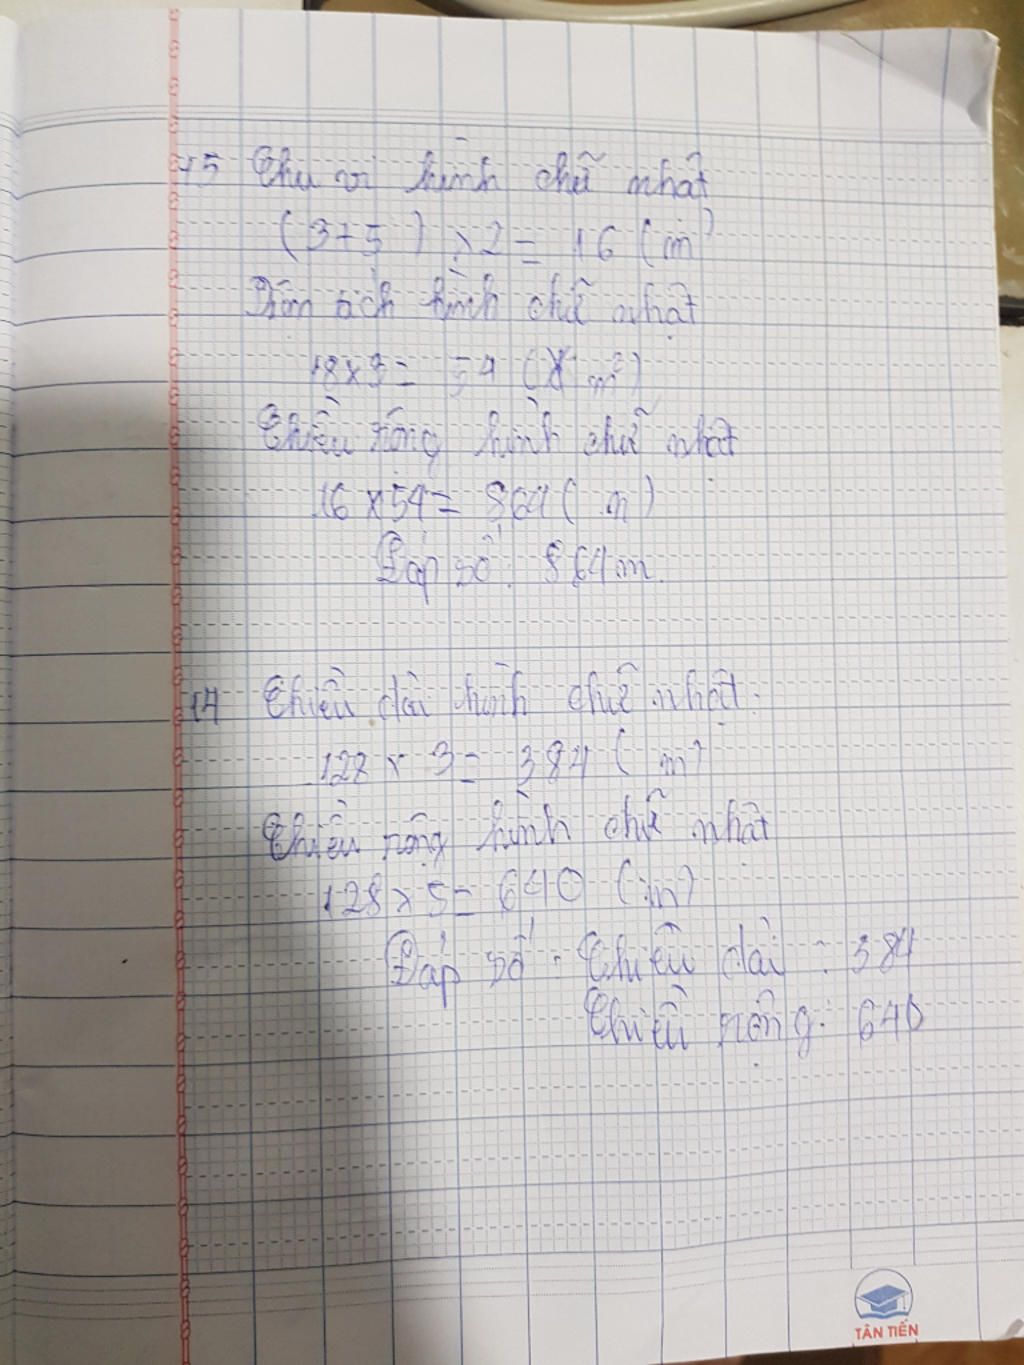 15 Chu vi hình chữ nhật
(3+5) x2 = 16 (m)
Diện tích hình chữ nhật
18x3= 54 (m²)
Chiều rộng hình chữ nhật
16 x 54 = 864 ( m )
Đáp số : 864 m.
14 Chiều dài hình chữ nhật.
128 x 3 = 384 ( m)
Chiều rộng hình chữ nhật
128 x 5 = 640 (m)
Đáp số : Chiều dài : 384
Chiều rộng : 640
TÂN TIẾN